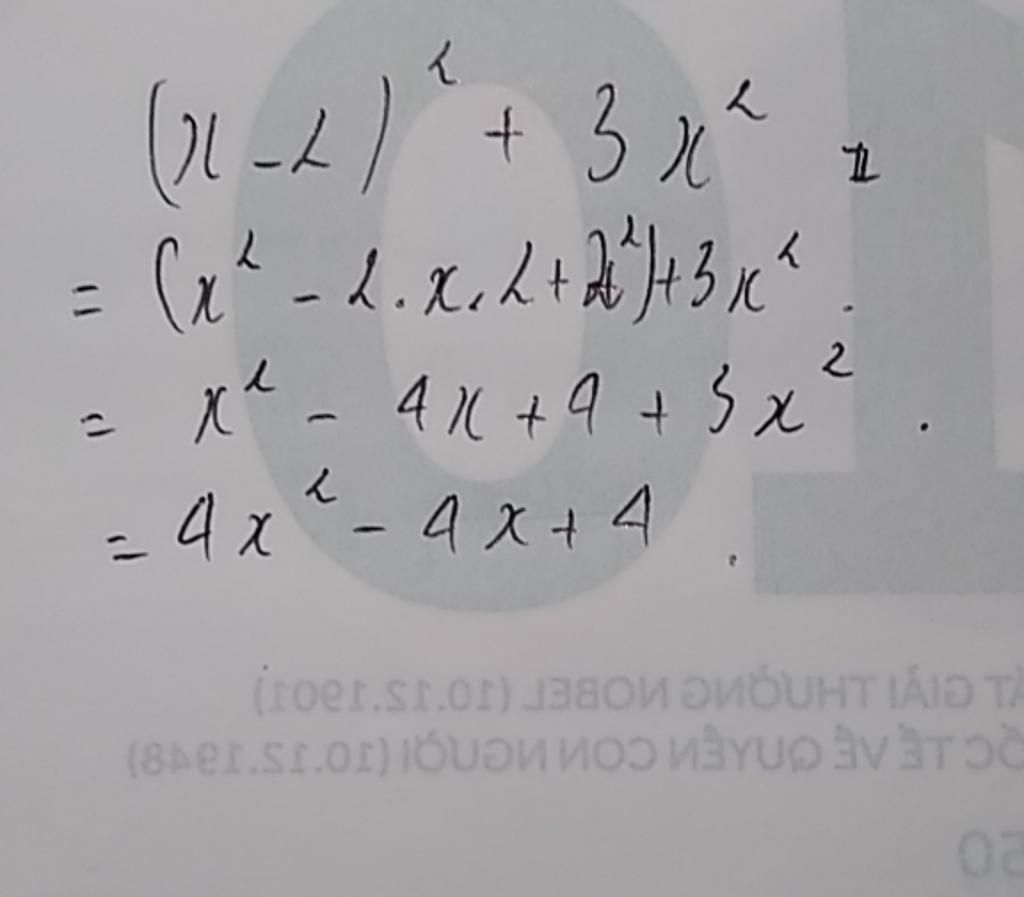 (x - 2)² + 3x² =
= (x² - 2.x.2 + 2²) + 3x².
= x² - 4x + 4 + 3x².
= 4x² - 4x + 4.
ẤT GIẢI THƯỞNG NOBEL (10.12.1901)
ỐC TẾ VỀ QUYỀN CON NGƯỜI (10.12.1948)